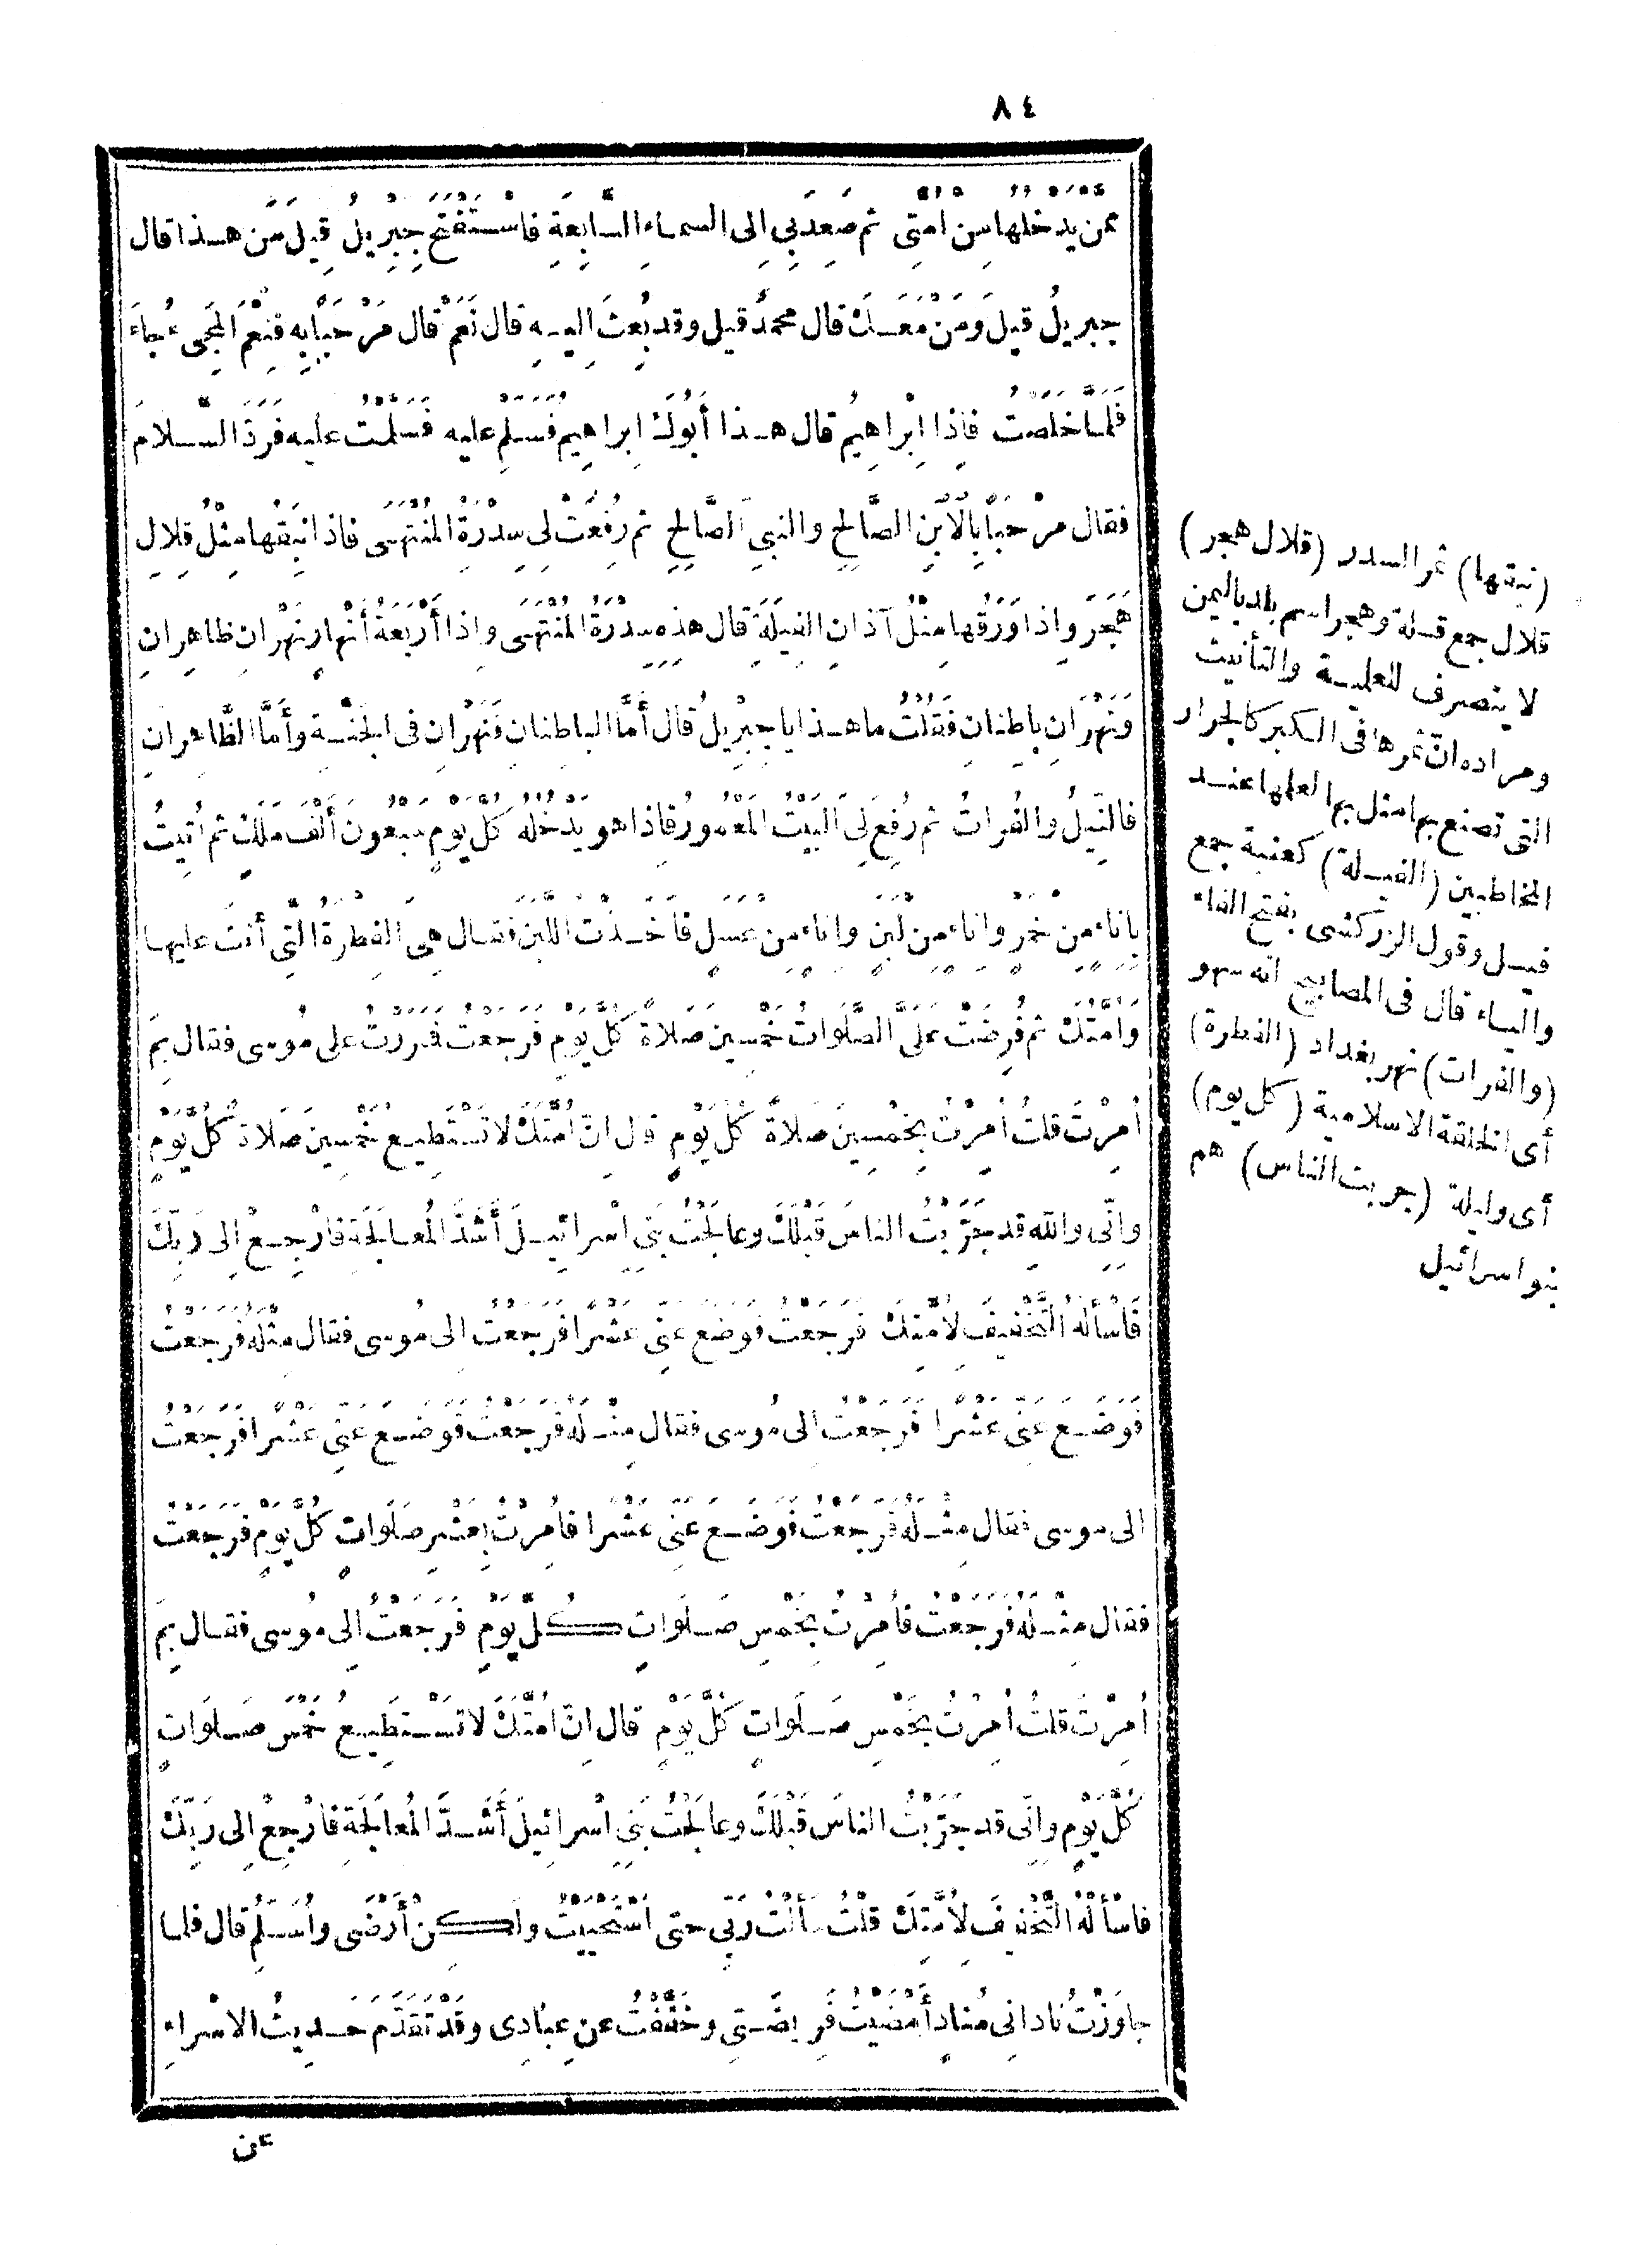 ٨٤
ممن يَدْخُلُها مِنْ أُمَّتِى ثم صَعِدَ بِى إلى السماءِ السَّابِعَةِ فاسْتَفْتَحَ جِبْرِيلُ قِيلَ مَن هـذا قال
جبريلُ قِيلَ وَمَنْ مَعَـكَ قال محمدٌ قيل وقد بُعِثَ إليـهِ قال نَعَمْ قال مَرْحَبًا بِه فَنِعْمَ المَجِىءُ جاءَ
فَلَمَّا خَلَصْتُ فاذا إبْراهِيمُ قال هـذا أَبُوكَ ابراهِيمُ فَسَلِّمْ عليه فَسَلَّمْتُ عليه فَرَدَّ السَّـلامَ
فقال مرْحَبًا بِالاِبْنِ الصَّالِحِ والنبىِّ الصَّالِحِ ثم رُفِعَتْ لِى سِدْرَةُ المُنْتَهَى فاذا نَبِقُها مِثْلُ قِلالِ
هَجَرَ واذا وَرَقُها مِثْلُ آذانِ الفِيَلَةِ قال هذِه سِدْرَةُ المُنْتَهَى واذا أَرْبَعَةُ أَنْهارٍ نَهْرانِ ظاهِرانِ
وَنَهْرَانِ باطِنانِ فَقُلْتُ ما هـذا يا جِبْرِيلُ قال أَمَّا الباطِنانِ فَنَهْرانِ فى الجَنَّـةِ وأَمَّا الظَّاهِرانِ
فالنِّيلُ والفُراتُ ثم رُفِعَ لِىَ البَيْتُ المَعْمُورُ فاذا هو يَدْخُلُهُ كُلَّ يَوْمٍ سَبْعُونَ أَلْفَ مَلَكٍ ثم أُتِيتُ
بإِناءٍ مِنْ خَمْرٍ وإناءٍ مِنْ لَبَنٍ وإناءٍ مِنْ عَسَلٍ فأَخَـذْتُ اللَّبَنَ فَقـال هِىَ الفِطْرَةُ الَّتِى أَنْتَ عليهـا
وَأُمَّتُكَ ثم فُرِضَتْ عَلَىَّ الصَّلَواتُ خَمْسِينَ صَلاةً كُلَّ يَوْمٍ فَرَجَعْتُ فَمَرَرْتُ على مُوسى فقال بِمَ
أُمِرْتَ قلتُ أُمِرْتُ بِخَمْسِينَ صَلاةً كُلَّ يَوْمٍ قال إنَّ أُمَّتَكَ لا تَسْتَطِيـعُ خَمْسِينَ صَلَاةً كُلَّ يَوْمٍ
وإنِّى واللهِ قد جَرَّبْتُ الناسَ قَبْلَكَ وعالَجْتُ بَنِى اسْرائِيـلَ أَشَدَّ المُعـالَجَةِ فارْجِـعْ إلى رَبِّكَ
فَاسْأَلْهُ التَّخْفِيفَ لأُمَّتِكَ فَرَجَعْتُ فَوَضَعَ عَنِّى عَشْرًا فَرَجَعْتُ إلى مُوسى فقال مِثْلَهُ فَرَجَعْتُ
فَوَضَـعَ عَنِّى عَشْرًا فَرَجَعْتُ إلى مُوسى فقال مِثْـلَهُ فَرَجَعْتُ فَوَضَـعَ عَنِّى عَشْرًا فَرَجَعْتُ
الى موسى فقال مِثْـلَهُ فَرَجَعْتُ فَوَضَـعَ عَنِّى عَشْرًا فأُمِرْتُ بِعَشْرِ صَلَواتٍ كُلَّ يَوْمٍ فَرَجَعْتُ
فقال مِثْـلَهُ فَرَجَعْتُ فأُمِرْتُ بِخَمْسِ صَـلَواتٍ كُـلَّ يَوْمٍ فَرَجَعْتُ إلى مُوسى فقـال بِمَ
أُمِرْتَ قلتُ أُمِرْتُ بِخَمْسِ صَـلَواتٍ كُلَّ يَوْمٍ قال إنَّ أُمَّتَكَ لا تَسْـتَطِيـعُ خَمْسَ صَـلَواتٍ
كُلَّ يَوْمٍ وإنِّى قد جَرَّبْتُ الناسَ قَبْلَكَ وعالَجْتُ بَنِى اسْرائِيلَ أَشَـدَّ المُعالَجَةِ فارْجِعْ إلى رَبِّكَ
فاسْأَلْهُ التَّخْفِيفَ لأُمَّتِكَ قلْتُ سَأَلْتُ رَبِّى حتى اسْتَحْيَيْتُ ولَـكِنْ أَرْضَى وأُسَـلِّمُ قال فلما
جاوَزْتُ نادانِى مُنادٍ أَمْضَيْتُ فَرِيضَـتِى وخَفَّفْتُ عن عِبادِى وقَدْ تَقَدَّمَ حَـدِيثُ الاسْراءِ
عن
(نبقها) ثمر السدر (قلال هجر)
قلال جمع قـلة وهجر اسم بلد باليمن
لا ينصرف للعلميـة والتأنيث
ومراده انّ ثمرها فى الـكبر كالجرار
التى تصنع بها مثل بها لعلمها عنـد
المخاطبين (الفيـلة) كعنبة جمع
فيـل وقول الزركشى بفتح الفاء
واليـاء قال فى المصابيح انه سهو
(والفرات) نهر بغداد (الفطرة)
أى الخلقة الاسلامية (كل يوم)
أى وليلة (جربت الناس) هم
بنو اسرائيل